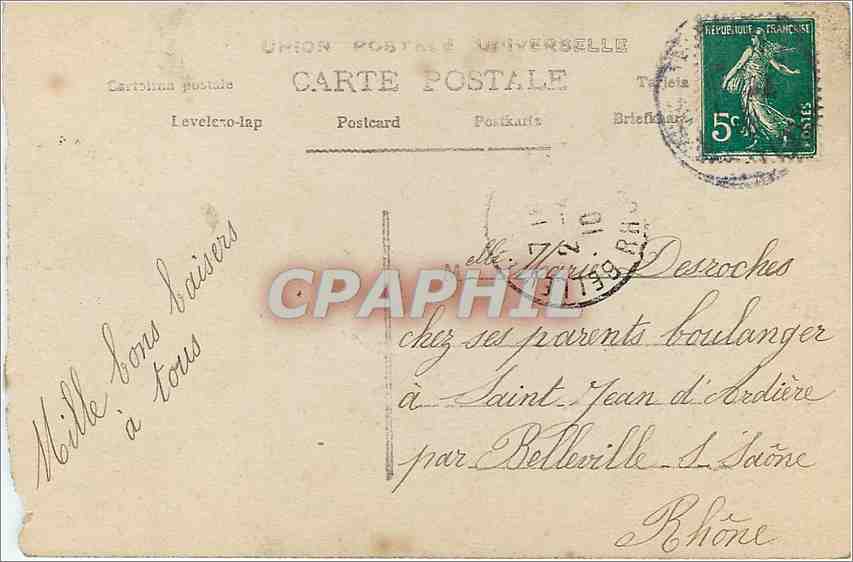 UNION POSTALE UNIVERSELLE
CARTE POSTALE
Cartolina postale
Levelezo-lap Postcard Postkarte
RÉPUBLIQUE FRANÇAISE
5c POSTES
BELLE RHO
10
CPAPHIL
Mille bons baisers
à tous
Melle Marie Desroches
chez ses parents boulanger
à Saint Jean d'Ardière
par Belleville s Saône
Rhône